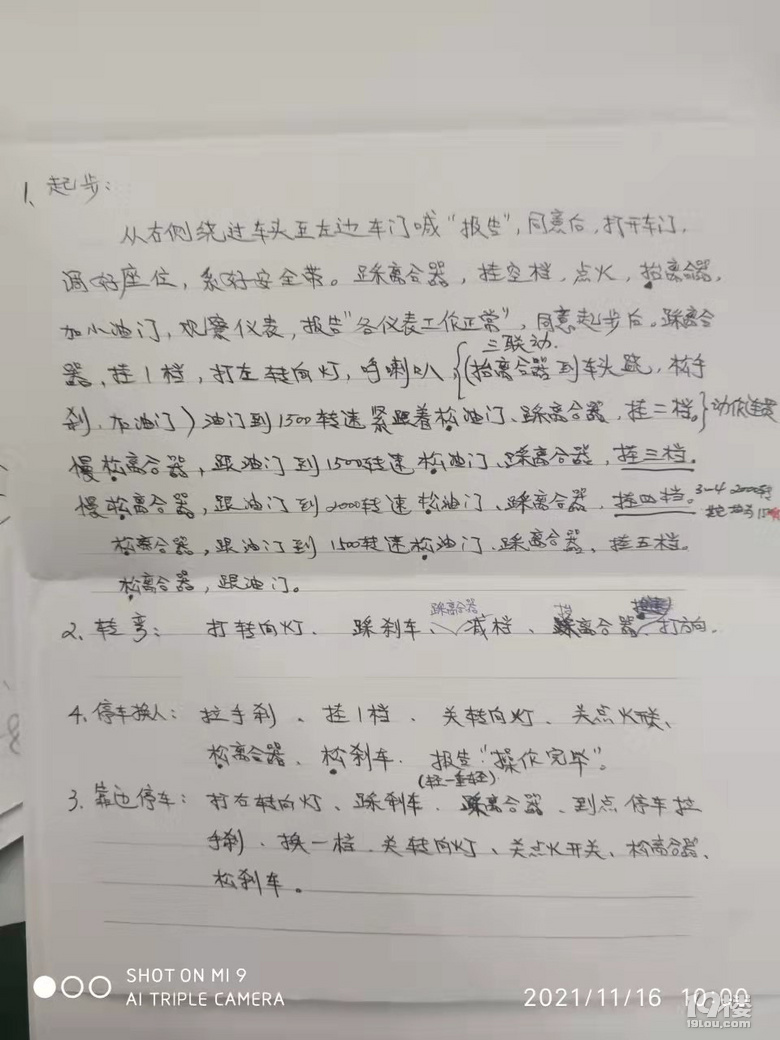 1、起步：
从右侧绕过车头至左边车门喊“报告”，同意后，打开车门，
调好座位，系好安全带。踩离合器，挂空档，点火，抬离合器，
加小油门，观察仪表，报告“各仪表工作正常”，同意起步后。踩离合
三联动.
器、挂1档，打左转向灯，呼喇叭，{(抬离合器到车头跳，松手
刹、加油门）油门到1500转速紧跟着松油门、踩离合器，挂二档。}动作连贯
慢松离合器，跟油门到1500转速松油门、踩离合器，挂三档.
慢松离合器，跟油门到2000转速松油门、踩离合器，挂四档。3-4 2000转
松离合器，跟油门到1500转速松油门、踩离合器、挂五档。
松离合器，跟油门。
踩离合器 抬
2、转弯： 打转向灯、踩刹车、减档、离合器、打方向.
4、停车换人： 拉手刹、挂1档、关转向灯、关点火
松离合器、松刹车. 报告“操作完毕”。
(轻-重-轻)
3、靠边停车： 打右转向灯、踩刹车、踩离合器、到点停车拉
手刹、换一档、关转向灯、关点火开关、松离合器、
松刹车。
SHOT ON MI 9
AI TRIPLE CAMERA
2021/11/16 10:00
19楼
19lou.com